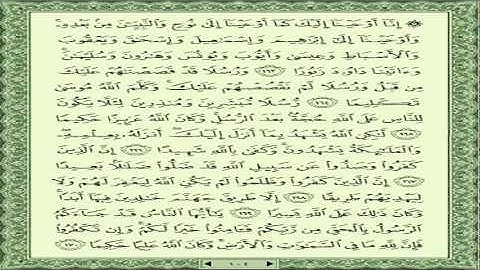 ۞ إِنَّآ أَوْحَيْنَآ إِلَيْكَ كَمَآ أَوْحَيْنَآ إِلَىٰ نُوحٍ وَٱلنَّبِيِّـۧنَ مِنۢ بَعْدِهِۦ
وَأَوْحَيْنَآ إِلَىٰٓ إِبْرَٰهِيمَ وَإِسْمَـٰعِيلَ وَإِسْحَـٰقَ وَيَعْقُوبَ
وَٱلْأَسْبَاطِ وَعِيسَىٰ وَأَيُّوبَ وَيُونُسَ وَهَـٰرُونَ وَسُلَيْمَـٰنَ
وَءَاتَيْنَا دَاوُۥدَ زَبُورًا ١٦٣ وَرُسُلًا قَدْ قَصَصْنَـٰهُمْ عَلَيْكَ
مِن قَبْلُ وَرُسُلًا لَّمْ نَقْصُصْهُمْ عَلَيْكَ وَكَلَّمَ ٱللَّهُ مُوسَىٰ
تَكْلِيمًا ١٦٤ رُّسُلًا مُّبَشِّرِينَ وَمُنذِرِينَ لِئَلَّا يَكُونَ
لِلنَّاسِ عَلَى ٱللَّهِ حُجَّةٌۢ بَعْدَ ٱلرُّسُلِ وَكَانَ ٱللَّهُ عَزِيزًا حَكِيمًا
١٦٥ لَّـٰكِنِ ٱللَّهُ يَشْهَدُ بِمَآ أَنزَلَ إِلَيْكَ أَنزَلَهُۥ بِعِلْمِهِۦ
وَٱلْمَلَـٰٓئِكَةُ يَشْهَدُونَ وَكَفَىٰ بِٱللَّهِ شَهِيدًا ١٦٦ إِنَّ ٱلَّذِينَ
كَفَرُوا۟ وَصَدُّوا۟ عَن سَبِيلِ ٱللَّهِ قَدْ ضَلُّوا۟ ضَلَـٰلًۢا بَعِيدًا
١٦٧ إِنَّ ٱلَّذِينَ كَفَرُوا۟ وَظَلَمُوا۟ لَمْ يَكُنِ ٱللَّهُ لِيَغْفِرَ لَهُمْ وَلَا
لِيَهْدِيَهُمْ طَرِيقًا ١٦٨ إِلَّا طَرِيقَ جَهَنَّمَ خَـٰلِدِينَ فِيهَآ أَبَدًا
وَكَانَ ذَٰلِكَ عَلَى ٱللَّهِ يَسِيرًا ١٦٩ يَـٰٓأَيُّهَا ٱلنَّاسُ قَدْ جَآءَكُمُ
ٱلرَّسُولُ بِٱلْحَقِّ مِن رَّبِّكُمْ فَـَٔامِنُوا۟ خَيْرًا لَّكُمْ وَإِن تَكْفُرُوا۟
فَإِنَّ لِلَّهِ مَا فِى ٱلسَّمَـٰوَٰتِ وَٱلْأَرْضِ وَكَانَ ٱللَّهُ عَلِيمًا حَكِيمًا ١٧٠
١٠٤